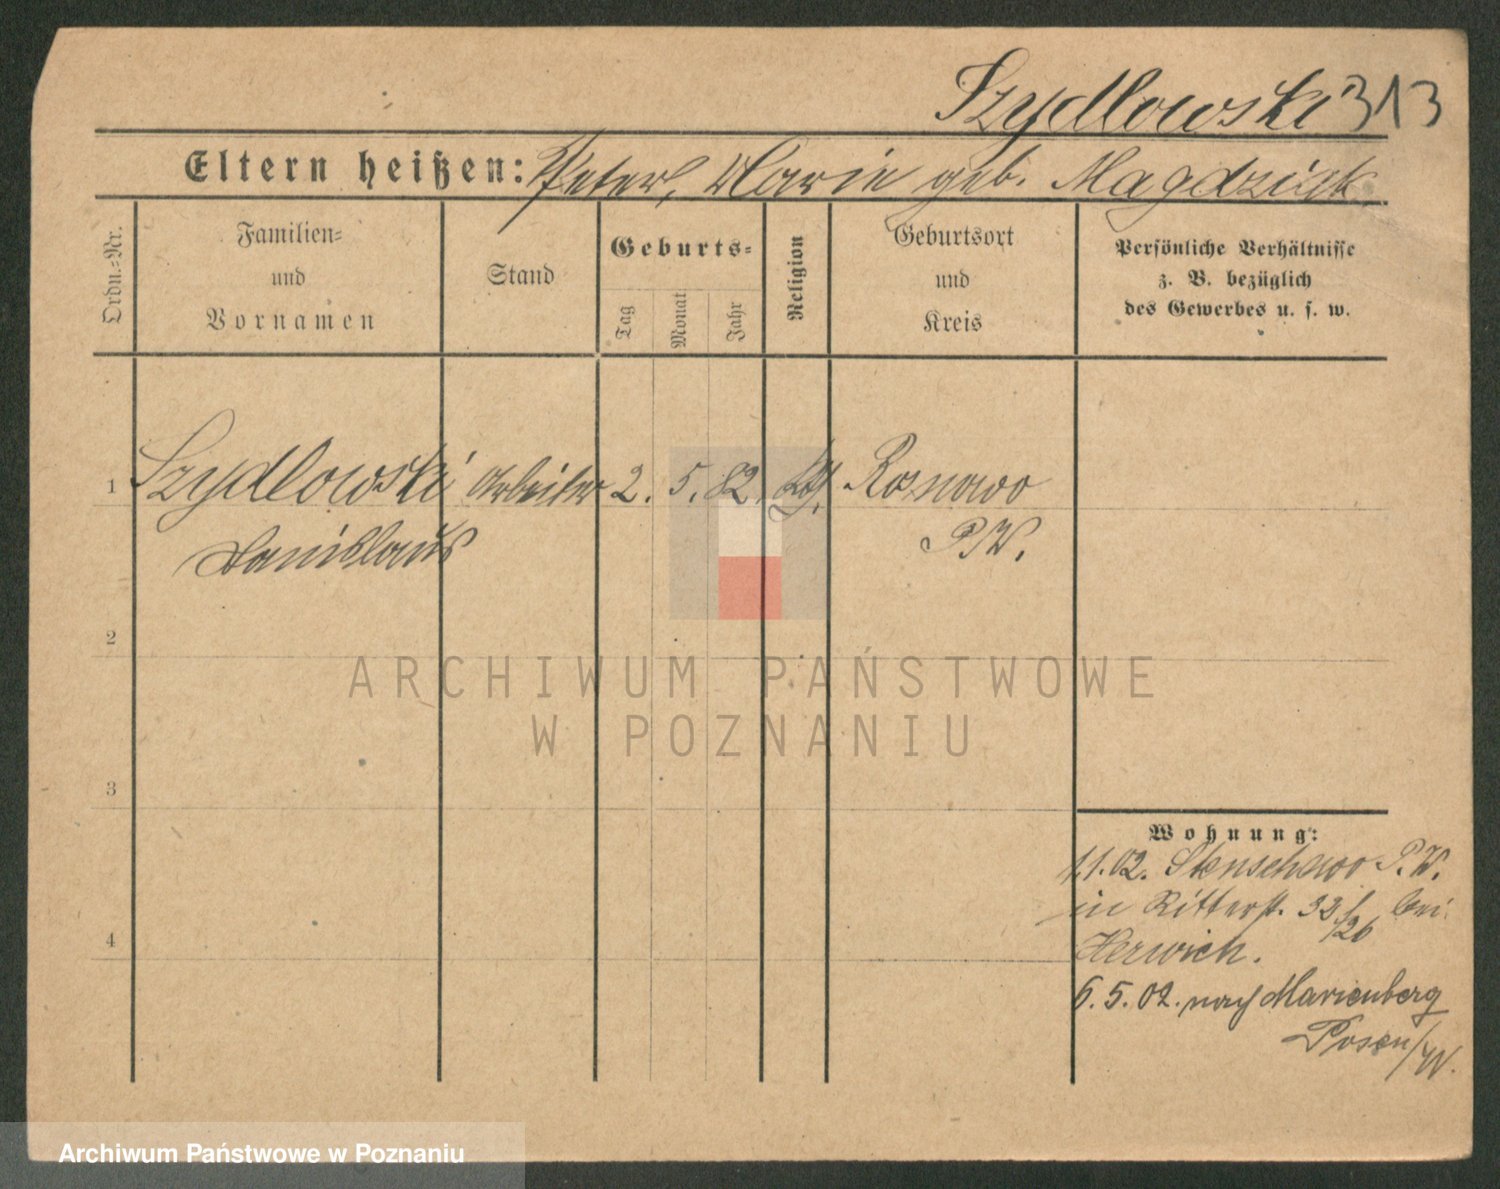 Szydlowski 313
Eltern heißen: Peter, Marie geb. Magdziak
Ordn.-Nr.
Familien-
und
Vornamen
Stand
Geburts-
Tag
Monat
Jahr
Religion
Geburtsort
und
Kreis
Persönliche Verhältnisse
z. B. bezüglich
des Gewerbes u. s. w.
1 Szydlowski Arbeiter 2. 5. 82. Rosnowo
Stanislaus P/W.
2
3
4
Wohnung:
1.1.02. Stenschewo P.W.
in Ritterstr. 33 bei
Herwich.
6.5.02. nach Marienberg
Posen/W.
ARCHIWUM PAŃSTWOWE
W POZNANIU
Archiwum Państwowe w Poznaniu